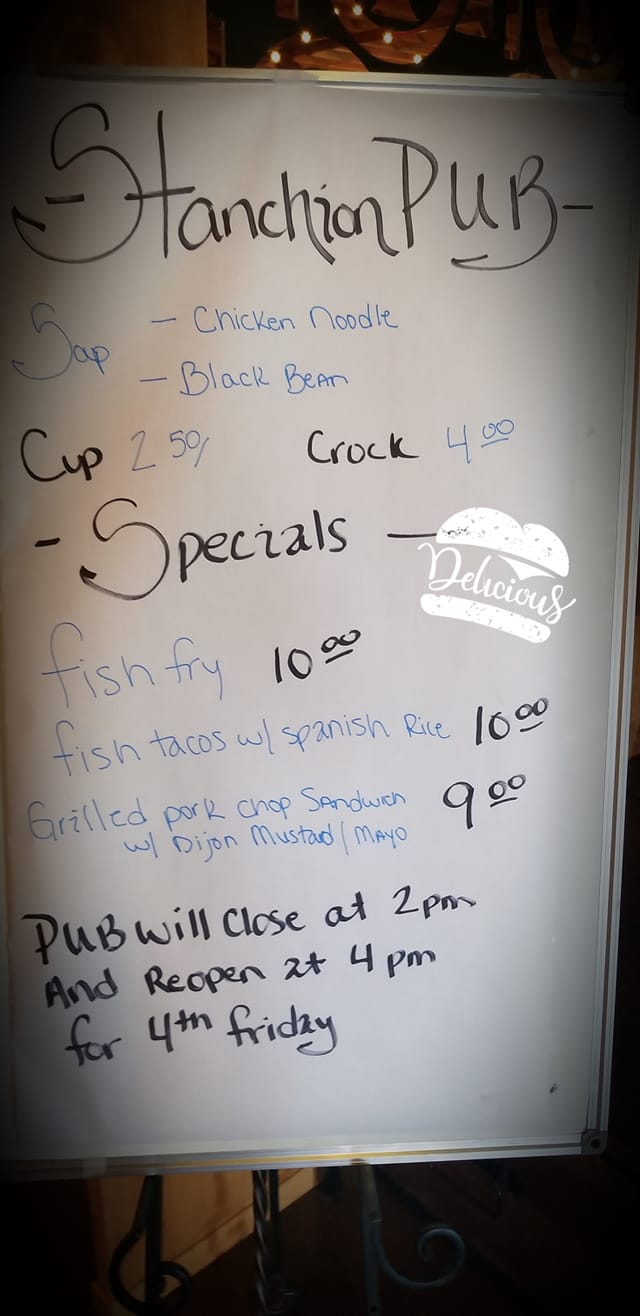 - Stanchion PUB -
Soup - Chicken Noodle
- Black Bean
Cup 2 50/ Crock 4 00
- Specials -
Delicious
fish fry 10 00
fish tacos w/ spanish Rice 10 00
Grilled pork chop Sandwich 9 00
w/ Dijon Mustard/MAYO
PUB will Close at 2pm
And Reopen at 4 pm
for 4th friday